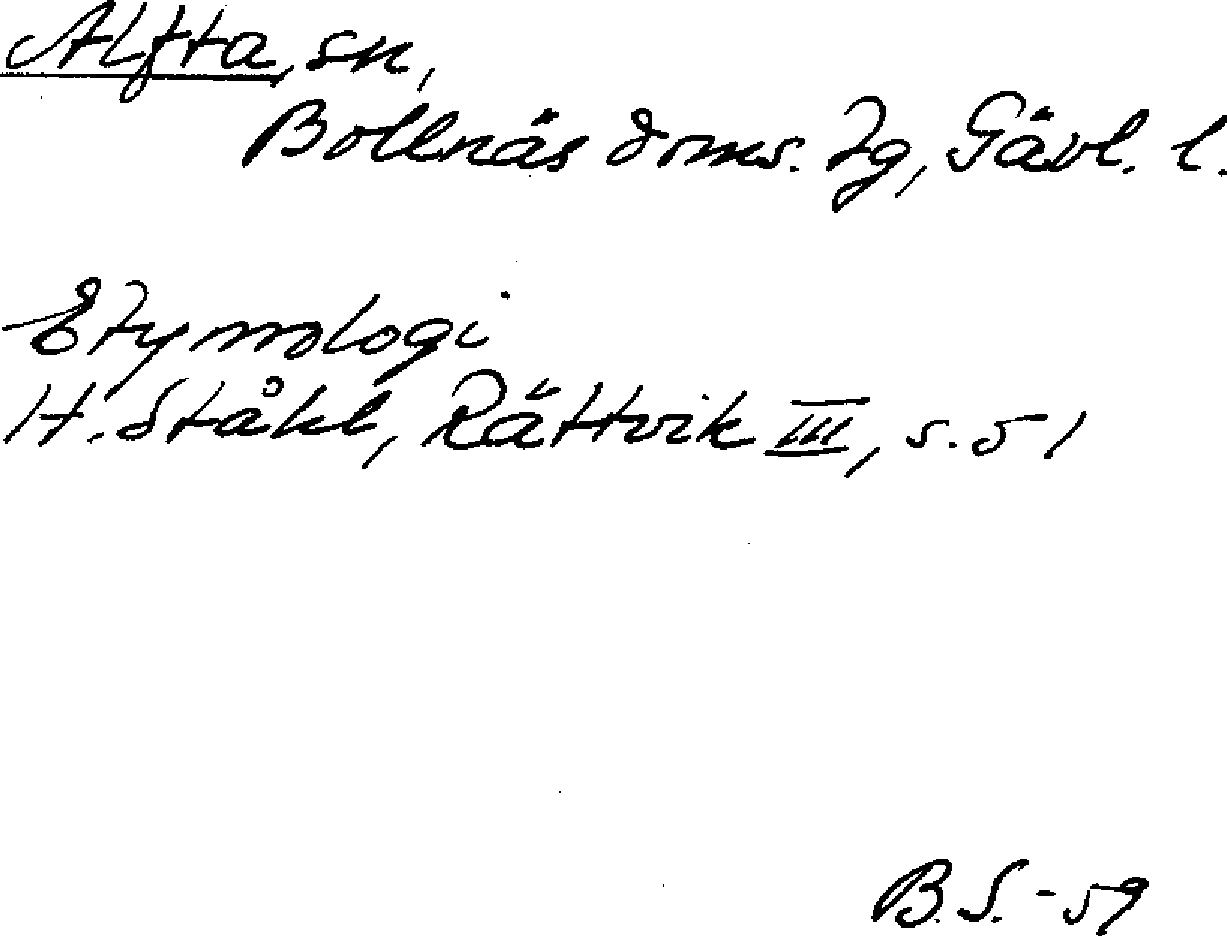 Alfta, sn,
Bollnäs doms. tg, Gävl. l.
Etymologi
H. Ståhl, Rättvik III, s. 51
B.S. - 59